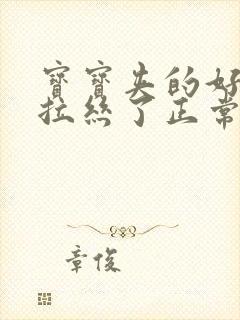 寶寶夹的好
拉絲了正常
章俊